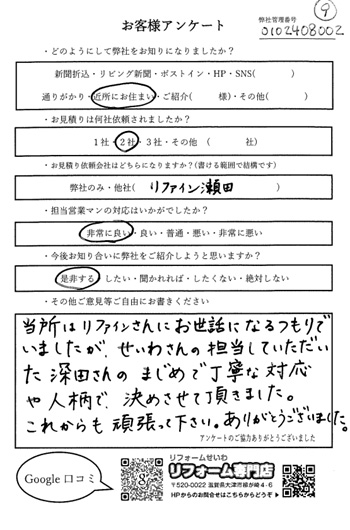 ⑨
お客様アンケート
弊社管理番号
0102408002
・どのようにして弊社をお知りになりましたか？
新聞折込・リビング新聞・ポストイン・HP・SNS(　　　)
通りがかり・近所にお住まい・ご紹介(　　　様)・その他(　　　)
・お見積りは何社依頼されましたか？
1社・2社・3社・その他　(　　　社)
・お見積り依頼会社はどちらになりますか？(書ける範囲で結構です)
弊社のみ・他社(　リファイン瀬田　)
・担当営業マンの対応はいかがでしたか？
非常に良い・良い・普通・悪い・非常に悪い
・今後お知り合いに弊社をご紹介しようと思いますか？
是非する・したい・聞かれれば・したくない・絶対しない
・その他ご意見等ご自由にお書きください
当所はリファインさんにお世話になるつもりで
いましたが、せいわさんの担当していただい
た深田さんのまじめで丁寧な対応
や人柄で、決めさせて頂きました。
これからも頑張って下さい。ありがとうございました。
アンケートのご協力ありがとうございました
Google口コミ
リフォームせいわ
リフォーム専門店
〒520-0022 滋賀県大津市柳が崎4-6
HPからのお問合せはこちらからどうぞ